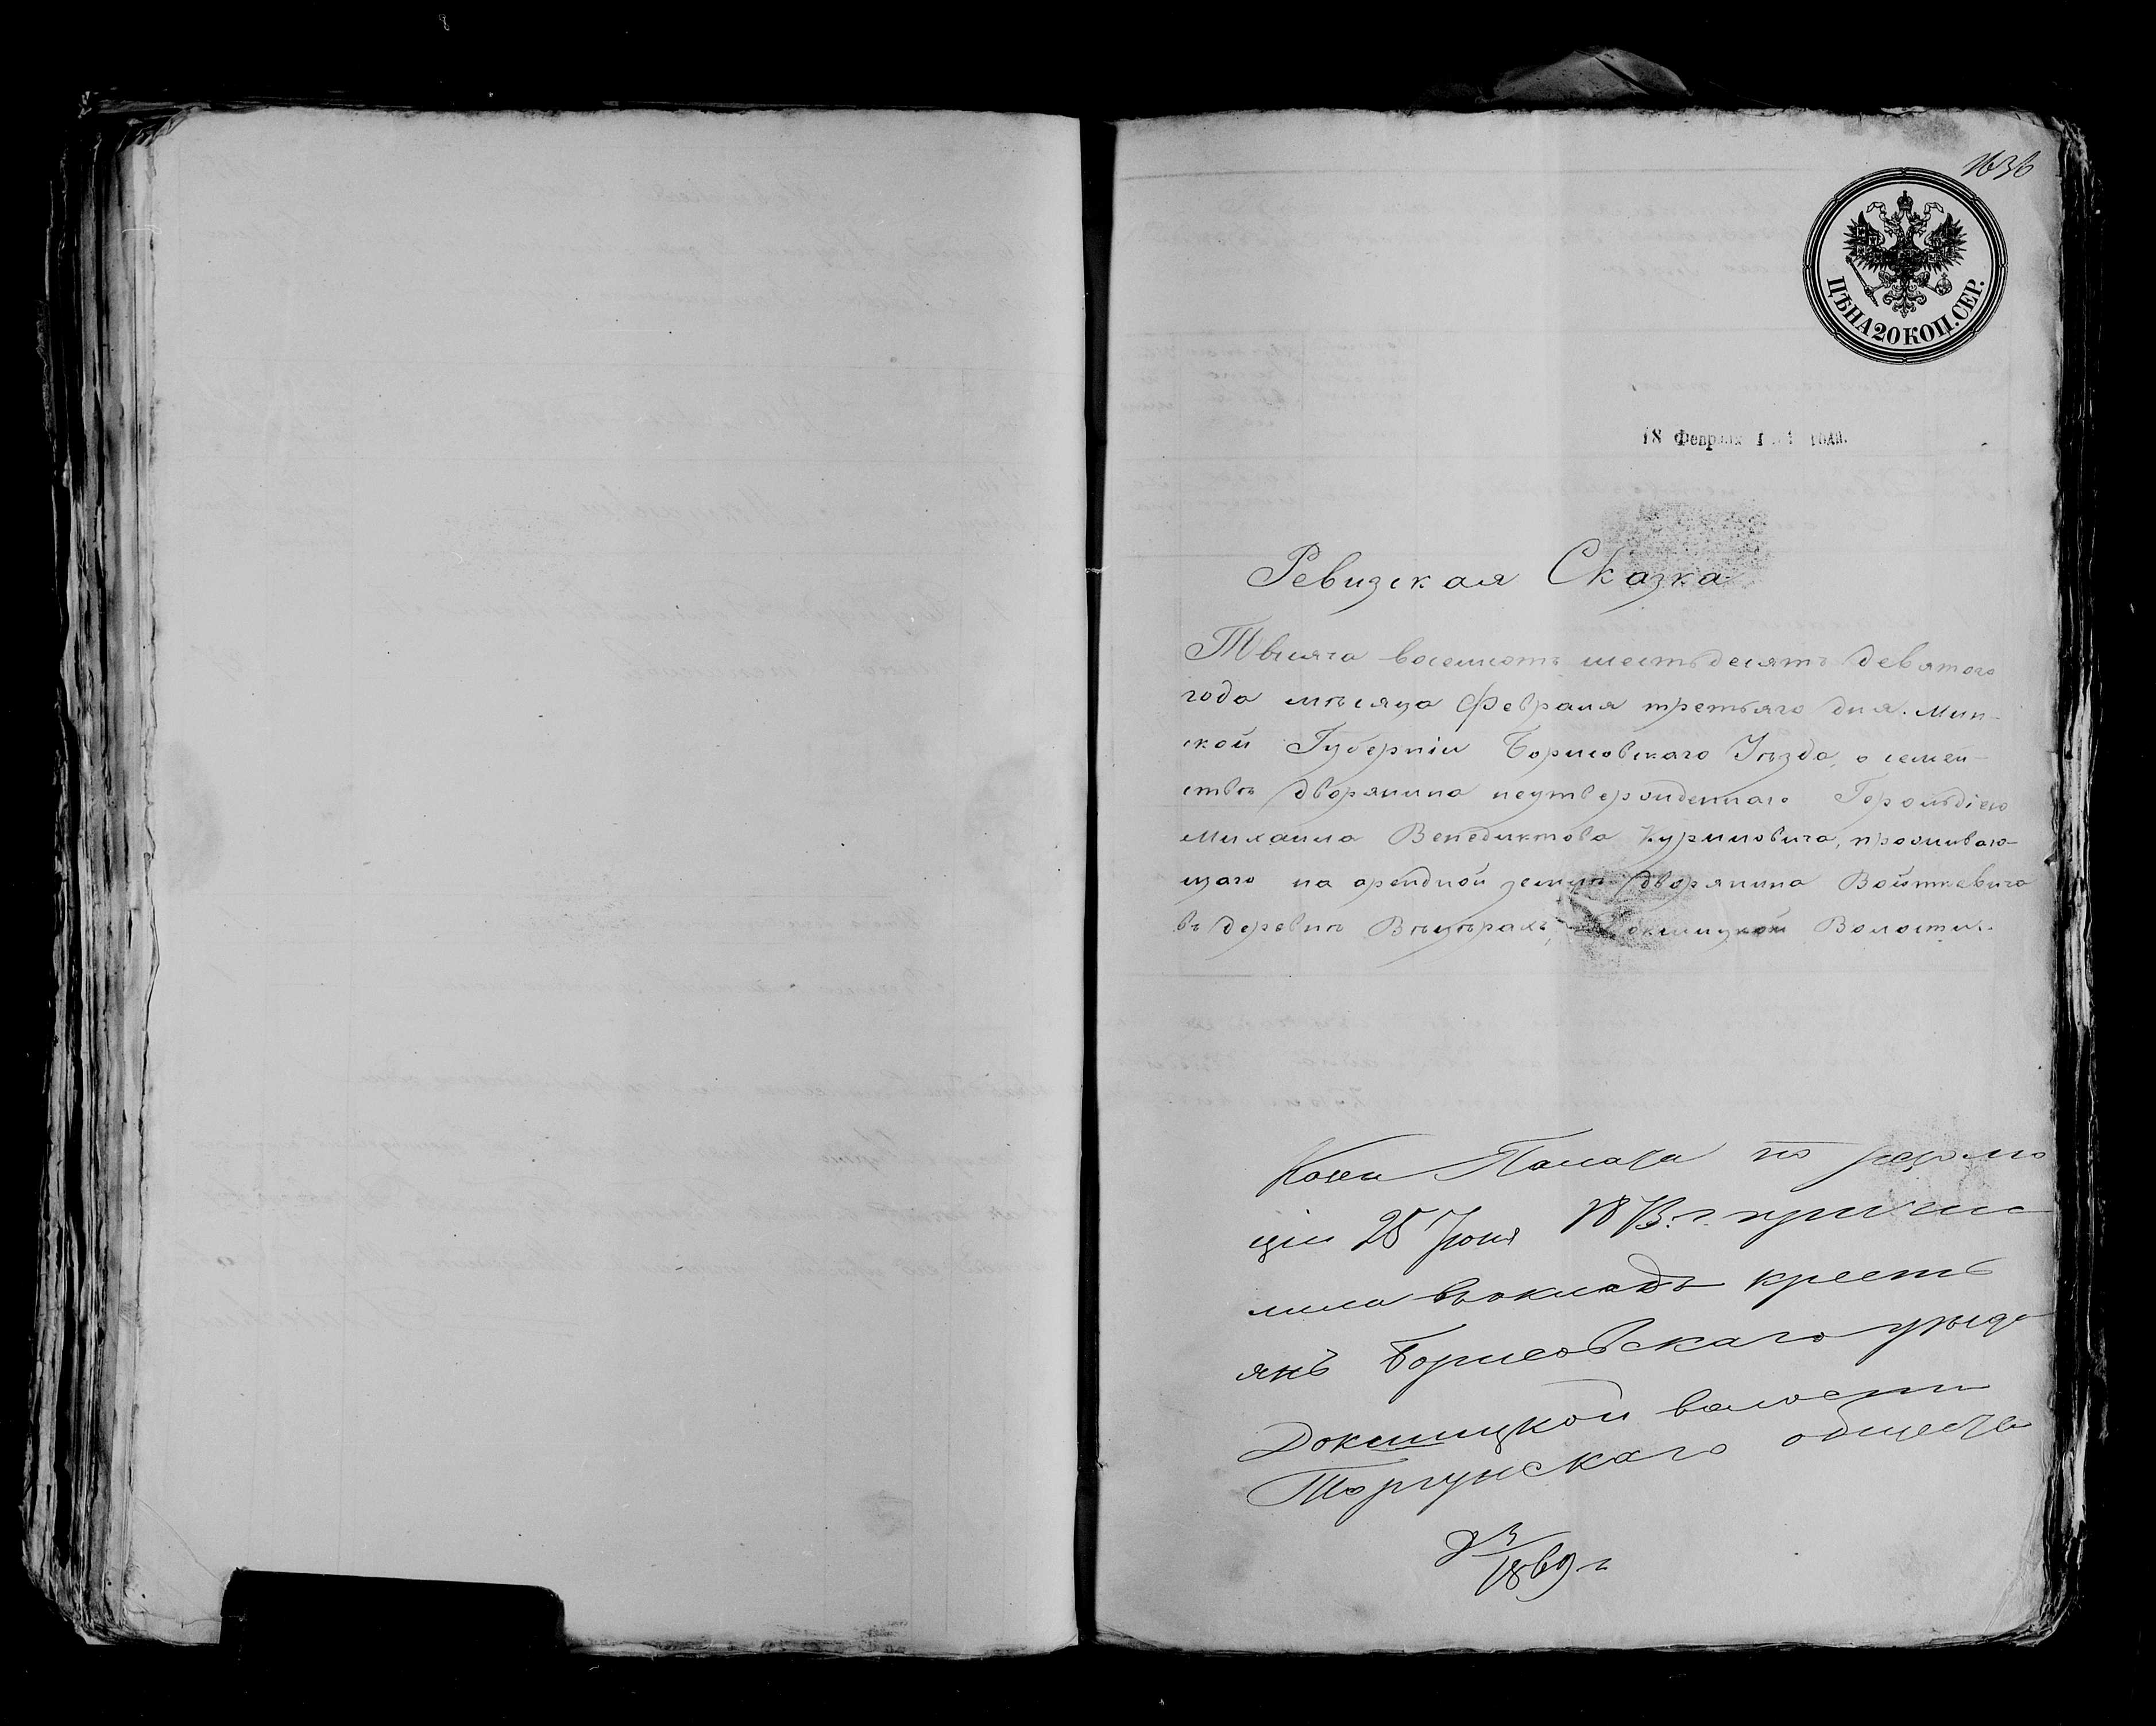 1636
ЦѢНА 20 КОП. СЕР.
18 Февраля
Ревизская Сказка
Тысяча восемьсотъ шестьдесятъ девятого
года мѣсяца Февраля третьяго дня. Мин-
ской Губерніи Борисовскаго Уѣзда, о семей-
ствѣ дворянина неутвержденнаго Герольдіею
Михаила Венедиктова Куриловича, прожываю-
щаго на арендной земли дворянина Войткевича
въ деревнѣ Докшицкой Волости.
Казен Палата по резолю
ціи 25 Юня 1873 г. причис
лила въ окладъ кресть
янъ Борисовскаго уѣзда
Докшицкой волости
Торгунскаго общества
1869 г